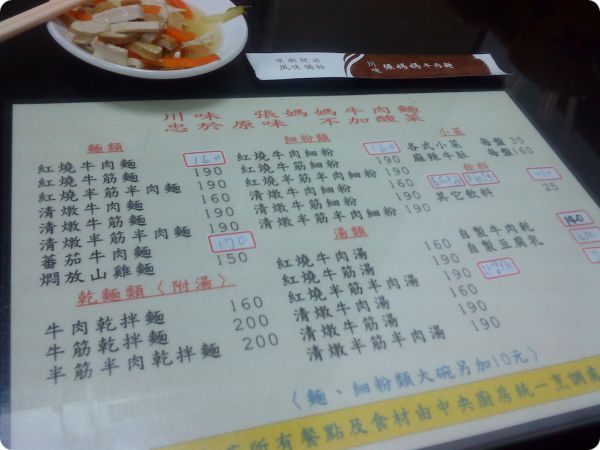 川味 張媽媽牛肉麵
川味 張媽媽牛肉麵
忠於原味 不加酸菜
麵類
紅燒牛肉麵 160
紅燒牛筋麵 190
紅燒半筋半肉麵 190
清燉牛肉麵 160
清燉牛筋麵 190
清燉半筋半肉麵 190
蕃茄牛肉麵 170
燜放山雞麵 150
乾麵類（附湯）
牛肉乾拌麵 160
牛筋乾拌麵 200
半筋半肉乾拌麵 200
細粉類
紅燒牛肉細粉 160
紅燒牛筋細粉 190
紅燒半筋半肉細粉 190
清燉牛肉細粉 160
清燉牛筋細粉 190
清燉半筋半肉細粉 190
湯類
紅燒牛肉湯 160
紅燒牛筋湯 190
紅燒半筋半肉湯 190
清燉牛肉湯 160
清燉牛筋湯 190
清燉半筋半肉湯 190
小菜
各式小菜 每盤35
麻辣牛肚 每盤160
飲料
其它飲料 25
自製牛肉乾 140
自製豆腐乳
（麵、細粉類大碗另加10元）
所有餐點及食材由中央廚房統一烹調